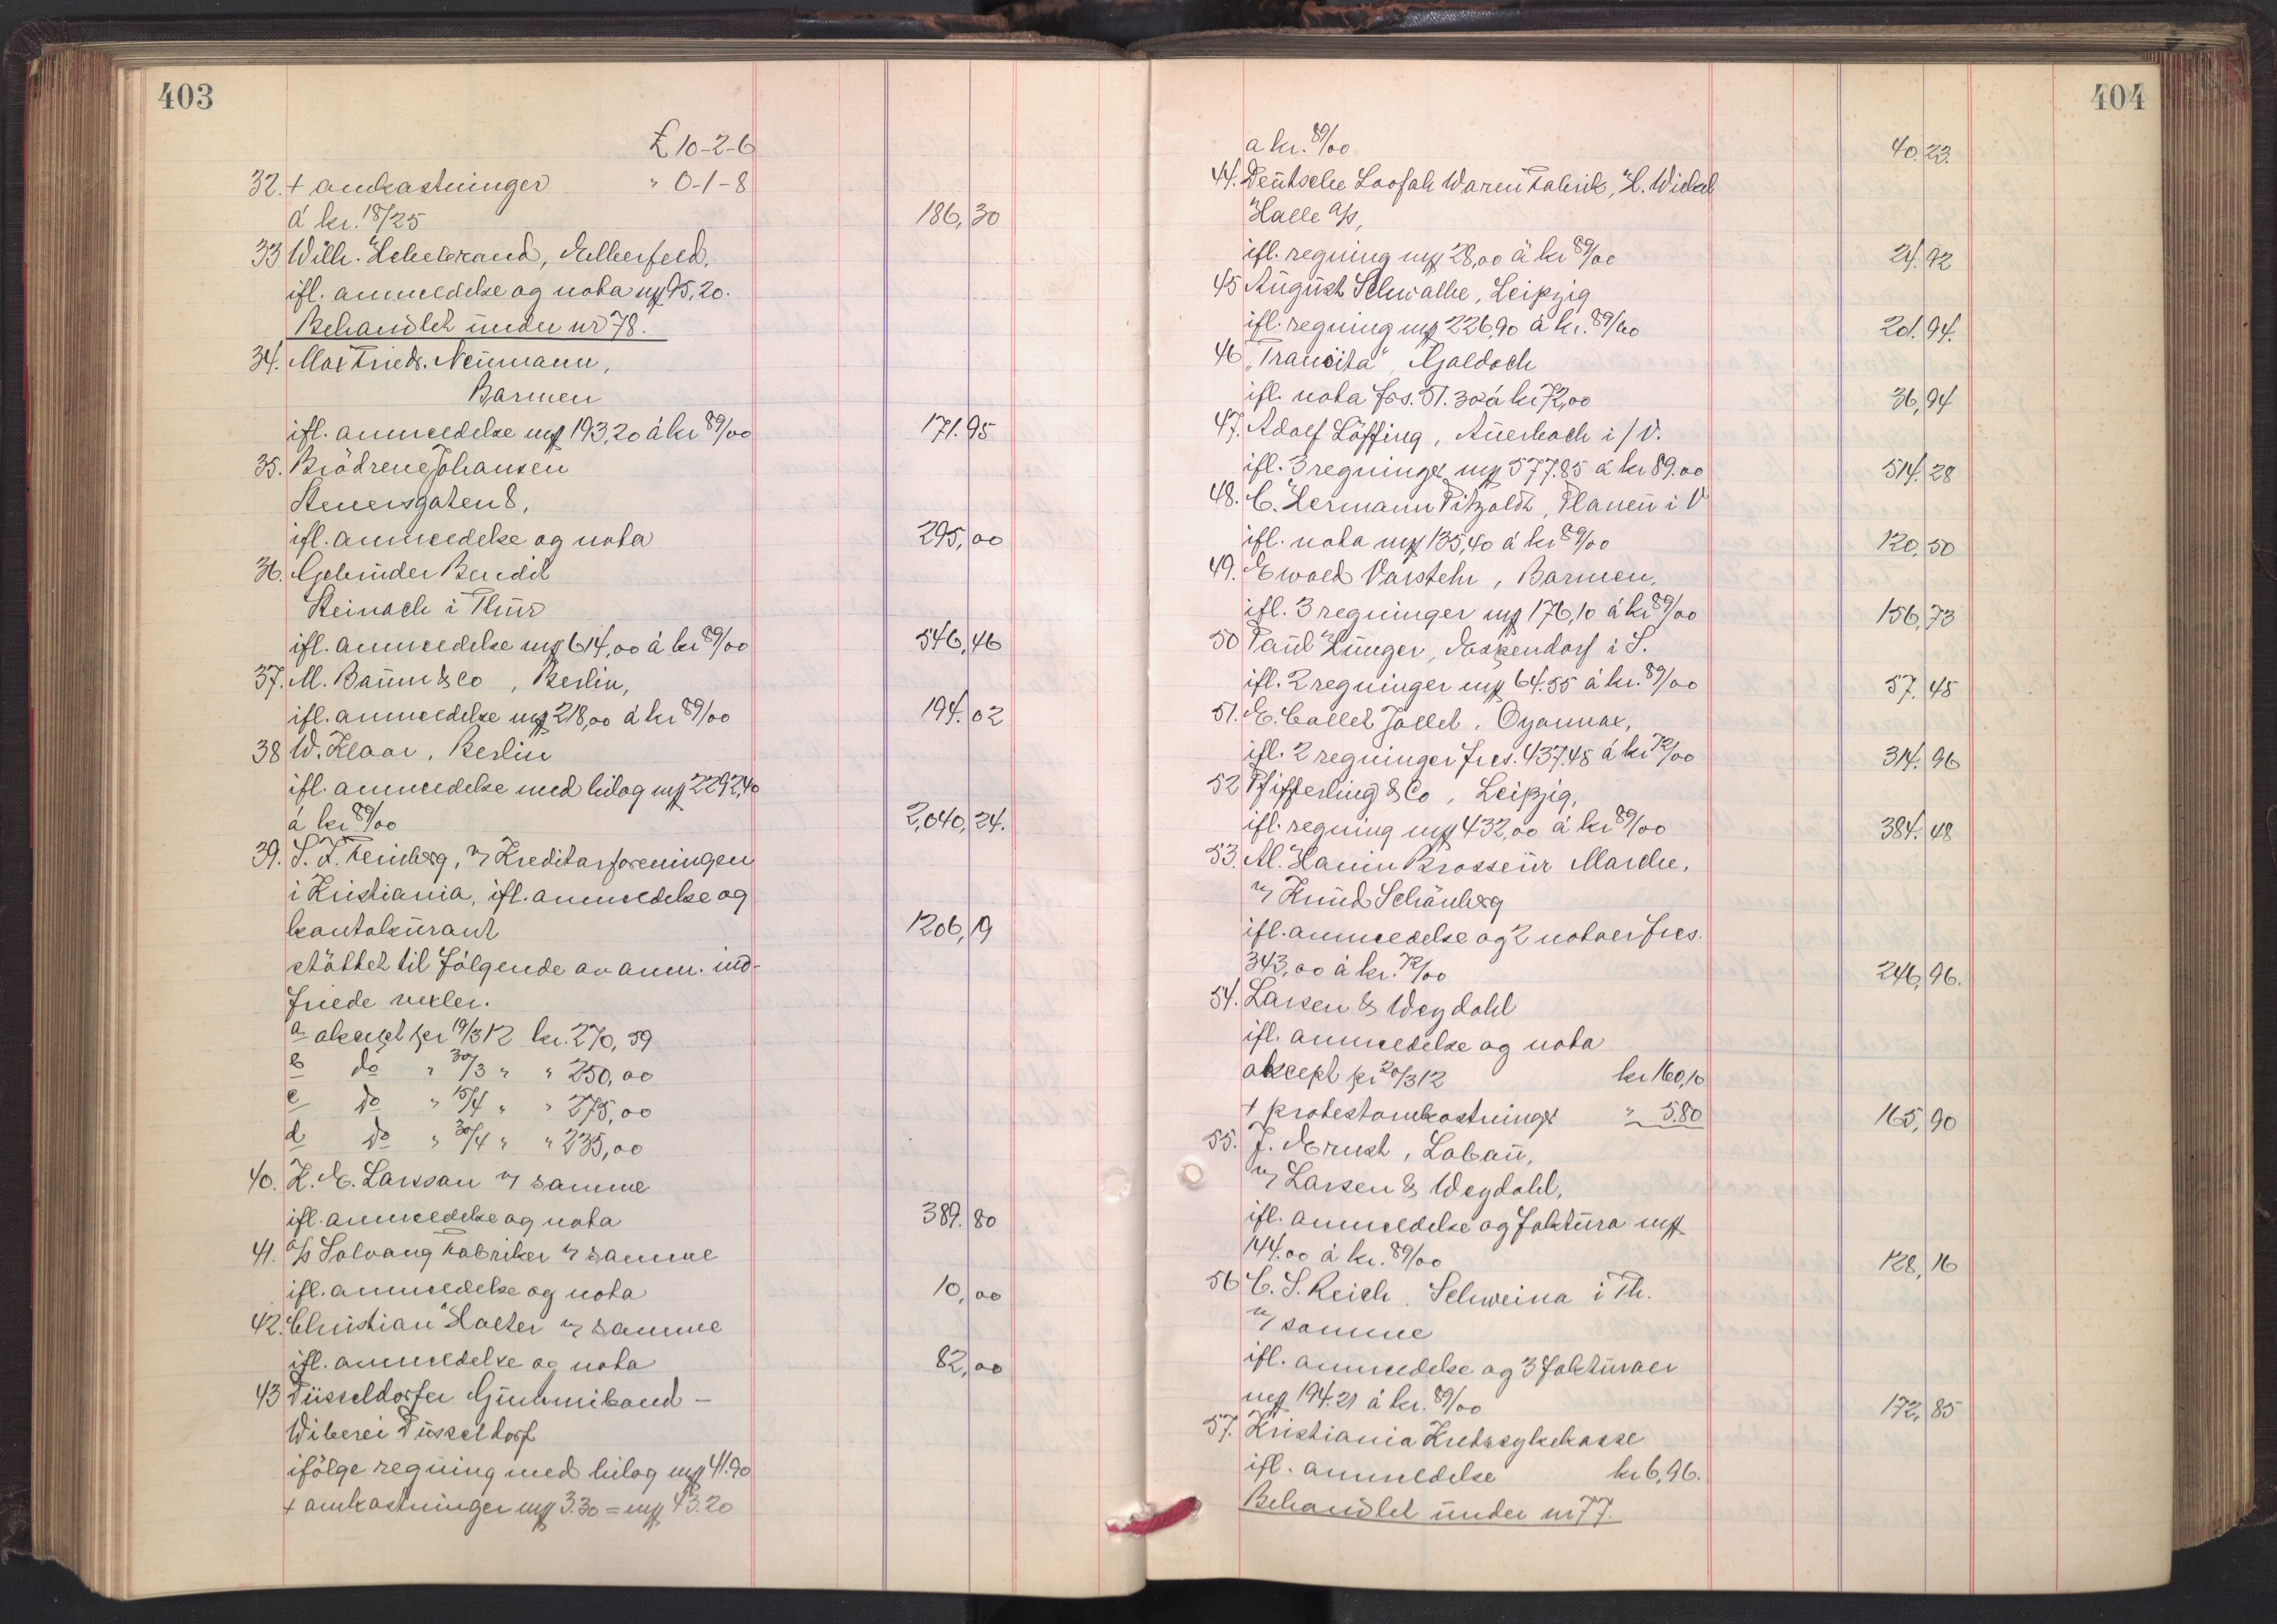 403
£ 10-2-6
32. + omkostninger " 0-1-8
á kr. 18/25 186,30
33 Wilh. Hehebrand, Elberfeld,
ifl. anmeldelse og nota mf 95,20.
Behandlet under nr 78.
34. Max Friedr. Neumann,
Barmen
ifl. anmeldelse mf 193,20 á kr 89/00 171.95
35. Brödrene Johansen
Stenersgaten 8,
ifl. anmeldelse og nota 295,00
36. Gebrüder Bendit
Steinach i Thür
ifl. anmeldelse mf 614,00 á kr 89/00 546,46
37. M. Baum & Co, Berlin,
ifl. anmeldelse mf 218,00 á kr 89/00 194.02
38 W. Klaar, Berlin
ifl. anmeldelse med bilag mf 2292,40
á kr 89/00 2,040,24.
39. S. L. Feinberg, v/ Kreditorforeningen
i Kristiania, ifl. anmeldelse og
kontokurant 1206,19
støttet til følgende av anm. ind-
friede vexler.
a aksept pr 19/3 12 kr. 270,59
b do " 30/3 " " 250,00
c do " 15/4 " " 275,00
d do " 30/4 " " 235,00
40. K. E. Larsson v/ samme
ifl. anmeldelse og nota 389.80
41. a/s Solvang Fabriker v/ samme
ifl. anmeldelse og nota 10,00
42. Christian Holter v/ samme
ifl. anmeldelse og nota 82,00
43 Düsseldorfer Gummiband-
Wiberei Düsseldorf
ifölge regning med bilag mf 41.90
+ omkostninger mf 3.30 = mf 43.20
404
a kr. 89/00 40.23.
44. Deutsche Loofah Waren Fabrik, H. Wickel
Halle a/s,
ifl. regning mf 28,00 á kr 89/00 24.92
45 August Schwalbe, Leipzig
ifl. regning mf 226,90 á kr. 89/00 201.94.
46 "Transita", Goldach
ifl. nota frs. 51.30 á kr 72,00 36,94
47. Adolf Löffing, Auerbach i/V.
ifl. 3 regninger mf 577.85 á kr 89.00 514.28
48. C. Hermann Pitzoldt, Plauen i V
ifl. nota mf 135,40 á kr 89/00 120,50
49. Ewald Vorstehr, Barmen,
ifl. 3 regninger mf 176,10 á kr 89/00 156,73
50 Paul Hunger, i S.
ifl. 2 regninger mf 64.55 á kr. 89/00 57.45
51. E. Collet Jollet, Oyonnax,
ifl. 2 regninger frcs. 437.45 á kr 72/00 314.96
52 Pfifferling & Co, Leipzig,
ifl. regning mf 432,00 á kr 89/00 384.48
53. Al. Hanin Brosseur Marche,
v/ Knud Schönberg
ifl. anmeldelse og 2 notaer frcs.
343,00 á kr. 72/00 246,96.
54. Larsen & Weydahl
ifl. anmeldelse og nota
aksept pr 20/3 12 kr 160,10
+ protestomkostninger " 5.80 165,90
55. J. Ernst, Lobau,
v/ Larsen & Weydahl,
ifl. anmeldelse og faktura mf
144.00 á kr. 89/00 128,16
56 C. S. Reich, Schweina i Th.
v/ samme
ifl. anmeldelse og 3 fakturaer
mf 194.21 á kr. 89/00 172,85
57. Kristiania Kretssykekasse
ifl. anmeldelse kr 6,96.
Behandlet under nr 77.